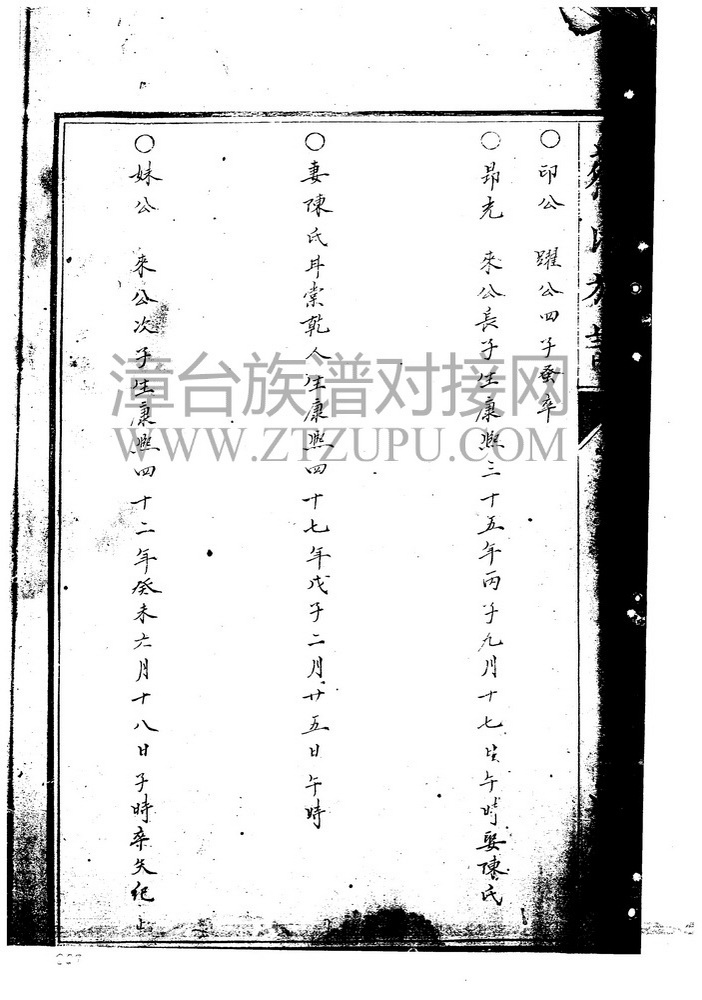 氏族譜
○印公 躍公四子蚤卒
○昴光 來公長子生康熙三十五年丙子九月十七日午時娶陳氏
○妻陳氏 乾人生康熙四十七年戊子二月廿五日午時
○妹公 來公次子生康熙四十二年癸未六月十八日子時卒失紀
漳台族谱对接网
WWW.ZTZUPU.COM